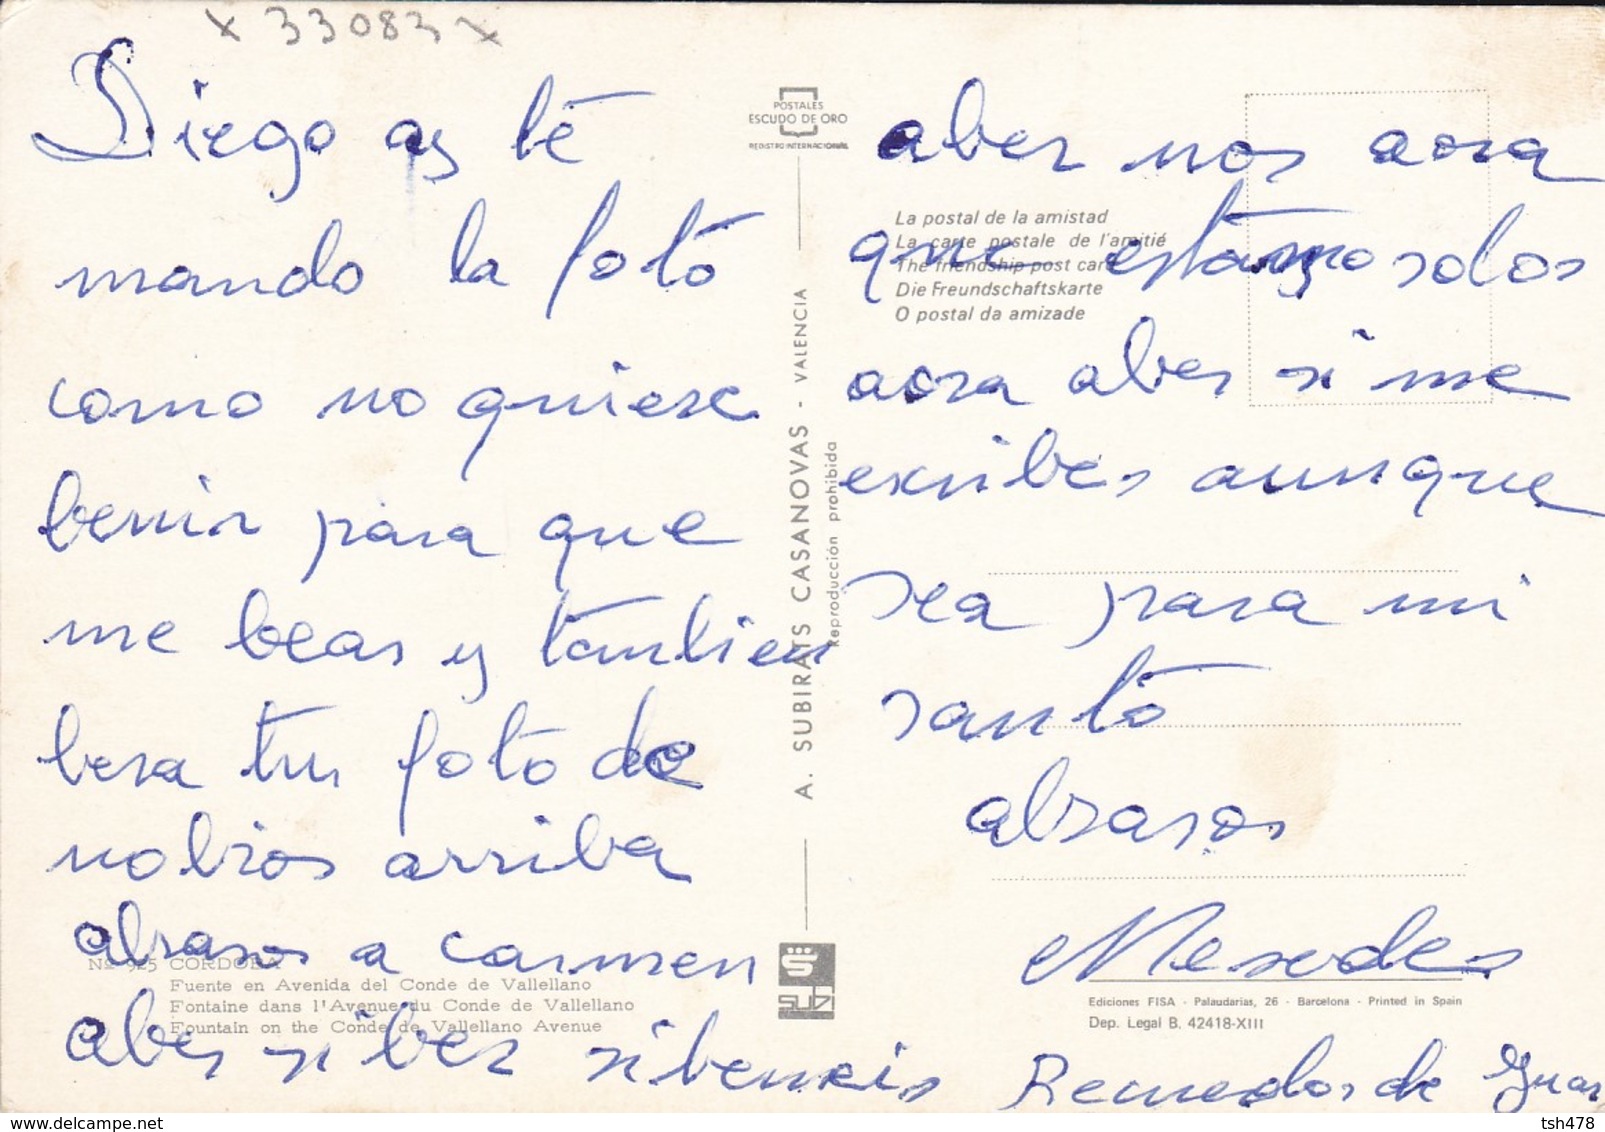 x 33083 x
Diego ay te
mando la foto
como no quiese
benir para que
me beas y tambien
besa tu foto de
nobios arriba
abrasos a carmen
aber si ber si beneis
POSTALES
ESCUDO DE ORO
REGISTRO INTERNACIONAL
A. SUBIRATS CASANOVAS - VALENCIA
Reproducción prohibida
Nº 925 CORDOBA
Fuente en Avenida del Conde de Vallellano
Fontaine dans l'Avenue du Conde de Vallellano
Fountain on the Conde de Vallellano Avenue
SUBI
aber nos aora
La postal de la amistad
La carte postale de l'amitié
The friendship post card
Die Freundschaftskarte
O postal da amizade
que estamos solos
aora aber si me
escribes aunque
sea para mi
santo
abrasos
Mesedes
Ediciones FISA - Palaudarias, 26 - Barcelona - Printed in Spain
Dep. Legal B. 42418-XIII
Recuerdos de Juan
www.delcampe.net
tsh478